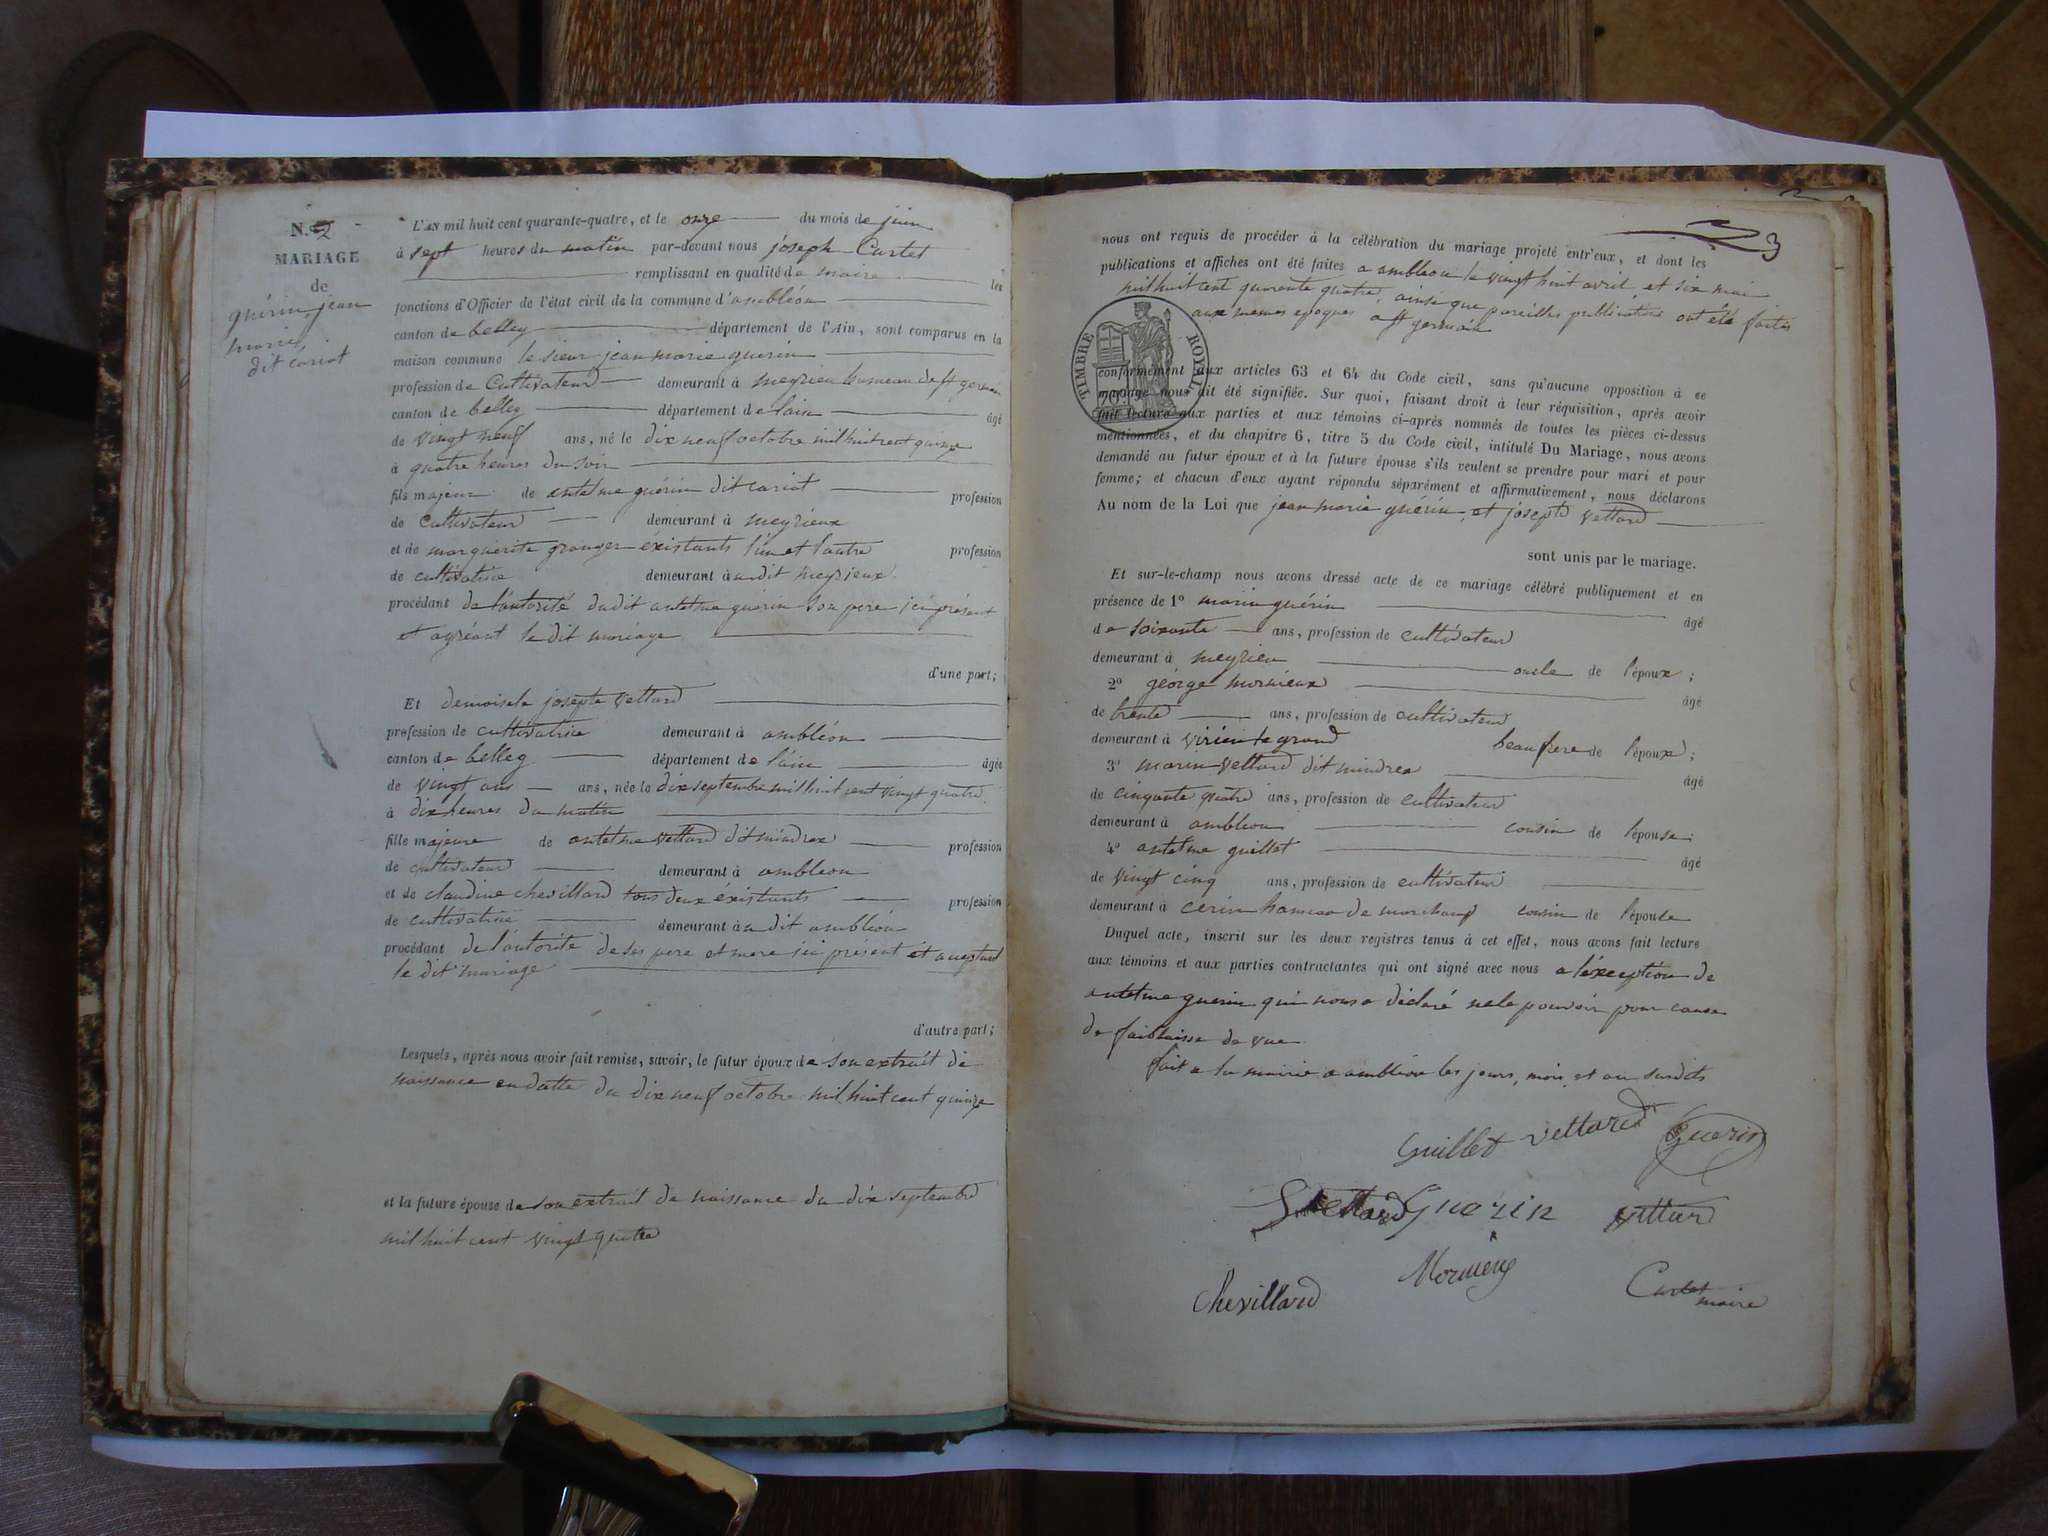 N.° 2
MARIAGE
de
guérin jean
marie
dit cariot
L'AN mil huit cent quarante-quatre, et le onze du mois de juin
à sept heures du matin par-devant nous joseph Curtet
remplissant en qualité de maire les
fonctions d'Officier de l'état civil de la commune d'ambléon
canton de belley département de l'Ain, sont comparus en la
maison commune le sieur jean marie guerin
profession de Cultivateur demeurant à meyrieu hameau de st germain
canton de belley département de lain âgé
de vingt neuf ans, né le dix neuf octobre mil huit cent quinze
à quatre heures du soir
fils majeur de antelme guérin dit cariot profession
de Cultivateur demeurant à meyrieux
et de marguerite granger éxistants l'un et lautre profession
de cultivatrice demeurant à u dit meyrieux
procédant de l'autorité dudit antelme guérin son pere ici présent
et agréant le dit mariage
d'une part;
Et demoiselle josepte Vettard
profession de cultivatrice demeurant à ambléon
canton de belley département de lain âgée
de vingt ans ans, née le dix septembre mil huit cent vingt quatre
à dix heures du matin
fille majeure de antelme Vettard dit mindrea profession
de cultivateur demeurant à ambléon
et de claudine chevillard tous deux éxistants profession
de cultivatrice demeurant à u dit ambléon
procédant de l'autorité de ses pere et mere ici présent et acceptant
le dit mariage
d'autre part;
Lesquels, après nous avoir fait remise, savoir, le futur époux de son extrait de
naissance en datte du dix neuf octobre mil huit cent quinze
et la future épouse de son extrait de naissance du dix septembre
mil huit cent vingt quatre
3
nous ont requis de procéder à la célébration du mariage projeté entr'eux, et dont les
publications et affiches ont été faites a ambléon le vingt huit avril et six mai
mil huit cent quarante quatre, ainsi que pareilles publications ont été faites
aux memes epoques a st germain
TIMBRE ROYAL
70
conformément aux articles 63 et 64 du Code civil, sans qu'aucune opposition à ce
mariage nous ait été signifiée. Sur quoi, faisant droit à leur réquisition, après avoir
fait lecture aux parties et aux témoins ci-après nommés de toutes les pièces ci-dessus
mentionnées, et du chapitre 6, titre 5 du Code civil, intitulé Du Mariage, nous avons
demandé au futur époux et à la future épouse s'ils veulent se prendre pour mari et pour
femme; et chacun d'eux ayant répondu séparément et affirmativement, nous déclarons
Au nom de la Loi que jean marie guérin, et josepte Vettard
sont unis par le mariage.
Et sur-le-champ nous avons dressé acte de ce mariage célébré publiquement et en
présence de 1° marin guérin âgé
de soixante ans, profession de cultivateur
demeurant à meyrieu oncle de l'époux;
2° géorge mornieux âgé
de trente ans, profession de cultivateur
demeurant à virieu le grand beaufrere de l'époux;
3° marin Vettard dit mindrea âgé
de cinquante quatre ans, profession de cultivateur
demeurant à ambléon cousin de l'épouse;
4° antelme guillet âgé
de vingt cinq ans, profession de cultivateur
demeurant à cerin hameau de marchamp cousin de l'épouse
Duquel acte, inscrit sur les deux registres tenus à cet effet, nous avons fait lecture
aux témoins et aux parties contractantes qui ont signé avec nous a l'éxception de
antelme guerin qui nous a déclaré ne le pouvoir pour cause
de faiblaisse de vue.
fait a la mairie a ambléon les jours, mois et an susdits
Guillet Vettard Guerin
Vettard Guerin Vettard
Chevillard Mornieux Curtet
maire